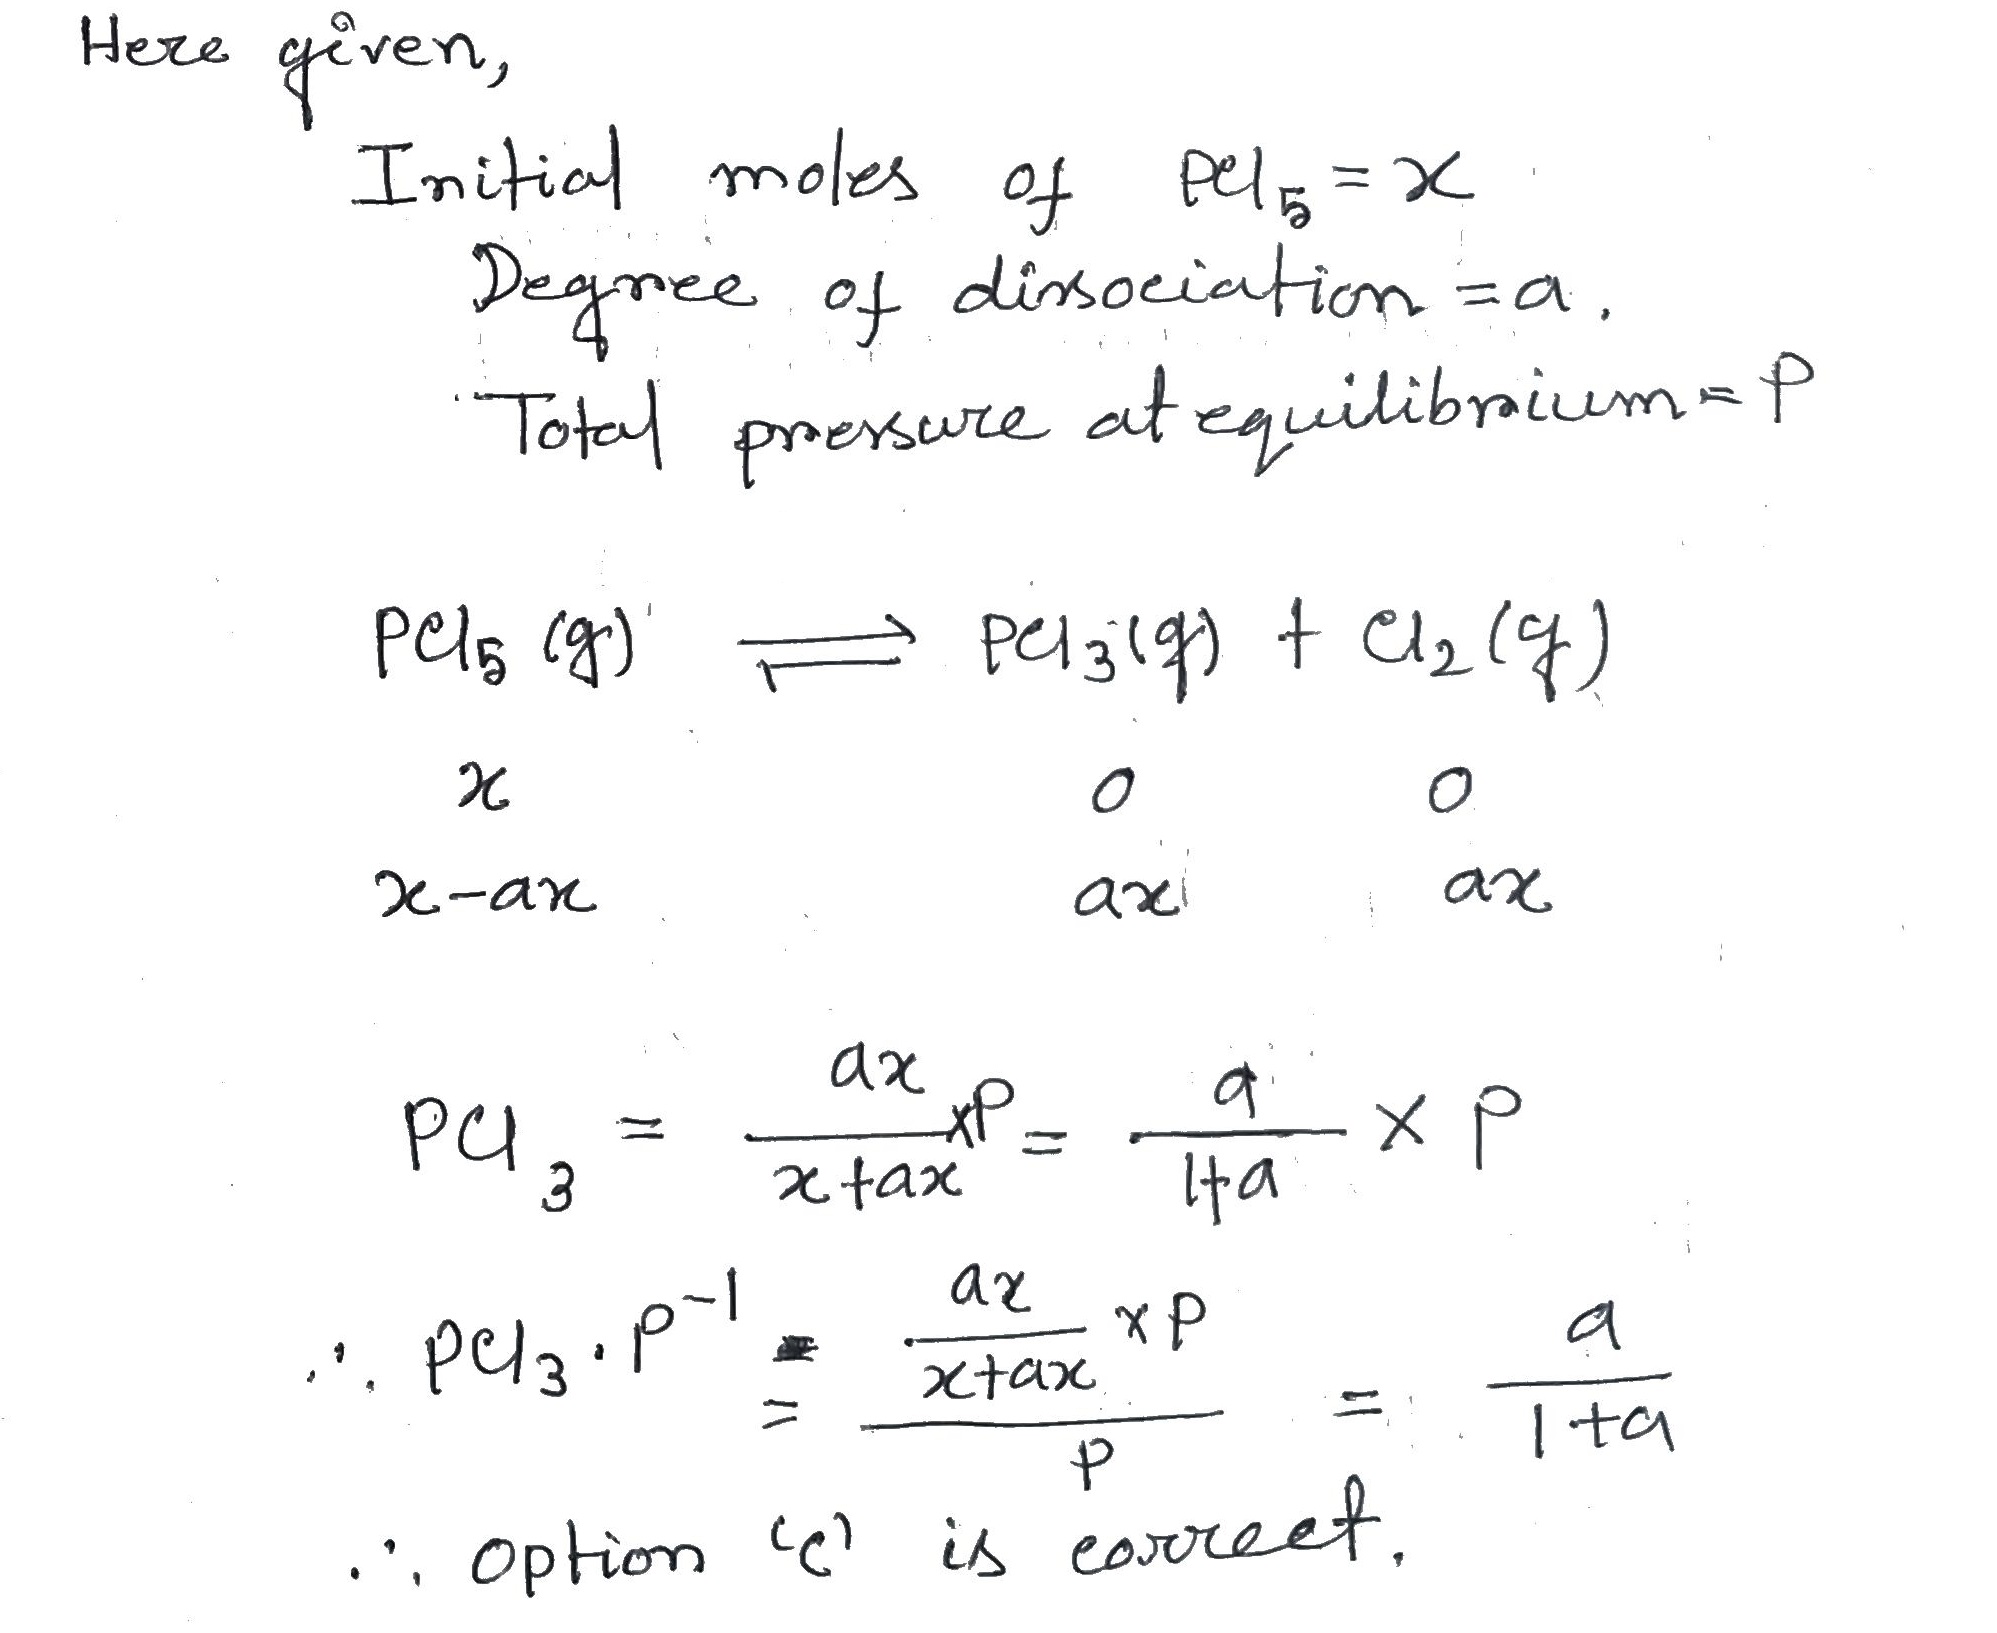 Here given,
Initial moles of PCl₅ = x
Degree of dissociation = a.
Total pressure at equilibrium = P
PCl₅ (g) ⇌ PCl₃ (g) + Cl₂ (g)
x 0 0
x-ax ax ax
PCl₃ = ax/(x+ax) × P = a/(1+a) × P
∴ PCl₃ · P⁻¹ = (ax/(x+ax) × P)/P = a/(1+a)
∴ option 'c' is correct.